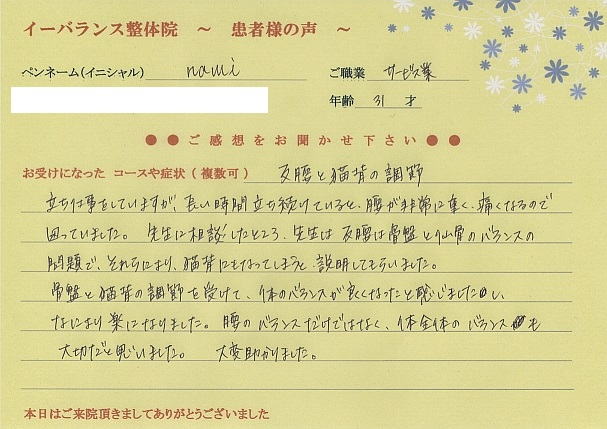 イーバランス整体院 ～ 患者様の声 ～
ペンネーム(イニシャル) nami ご職業 サービス業
年齢 31 才
●●ご感想をお聞かせ下さい●●
お受けになった コースや症状(複数可) 反腰と猫背の調節
立ち仕事をしていますが、長い時間立ち続けていると、腰が非常に重く、痛くなるので
困っていました。 先生に相談したところ、先生は反腰は骨盤と仙骨のバランスの
問題で、それらにより、猫背にもなってしまうと、説明してもらいました。
骨盤と猫背の調節を受けて、体のバランスが良くなったと感じましたし、
なにより楽になりました。腰のバランスだけではなく、体全体のバランスも
大切だと思いました。 大変助かりました。
本日はご来院頂きましてありがとうございました